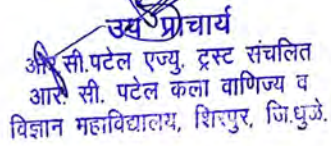 उप प्राचार्य
आर. सी.पटेल एज्यु. ट्रस्ट संचलित
आर. सी. पटेल कला वाणिज्य व
विज्ञान महाविद्यालय, शिरपुर, जि.धुळे.